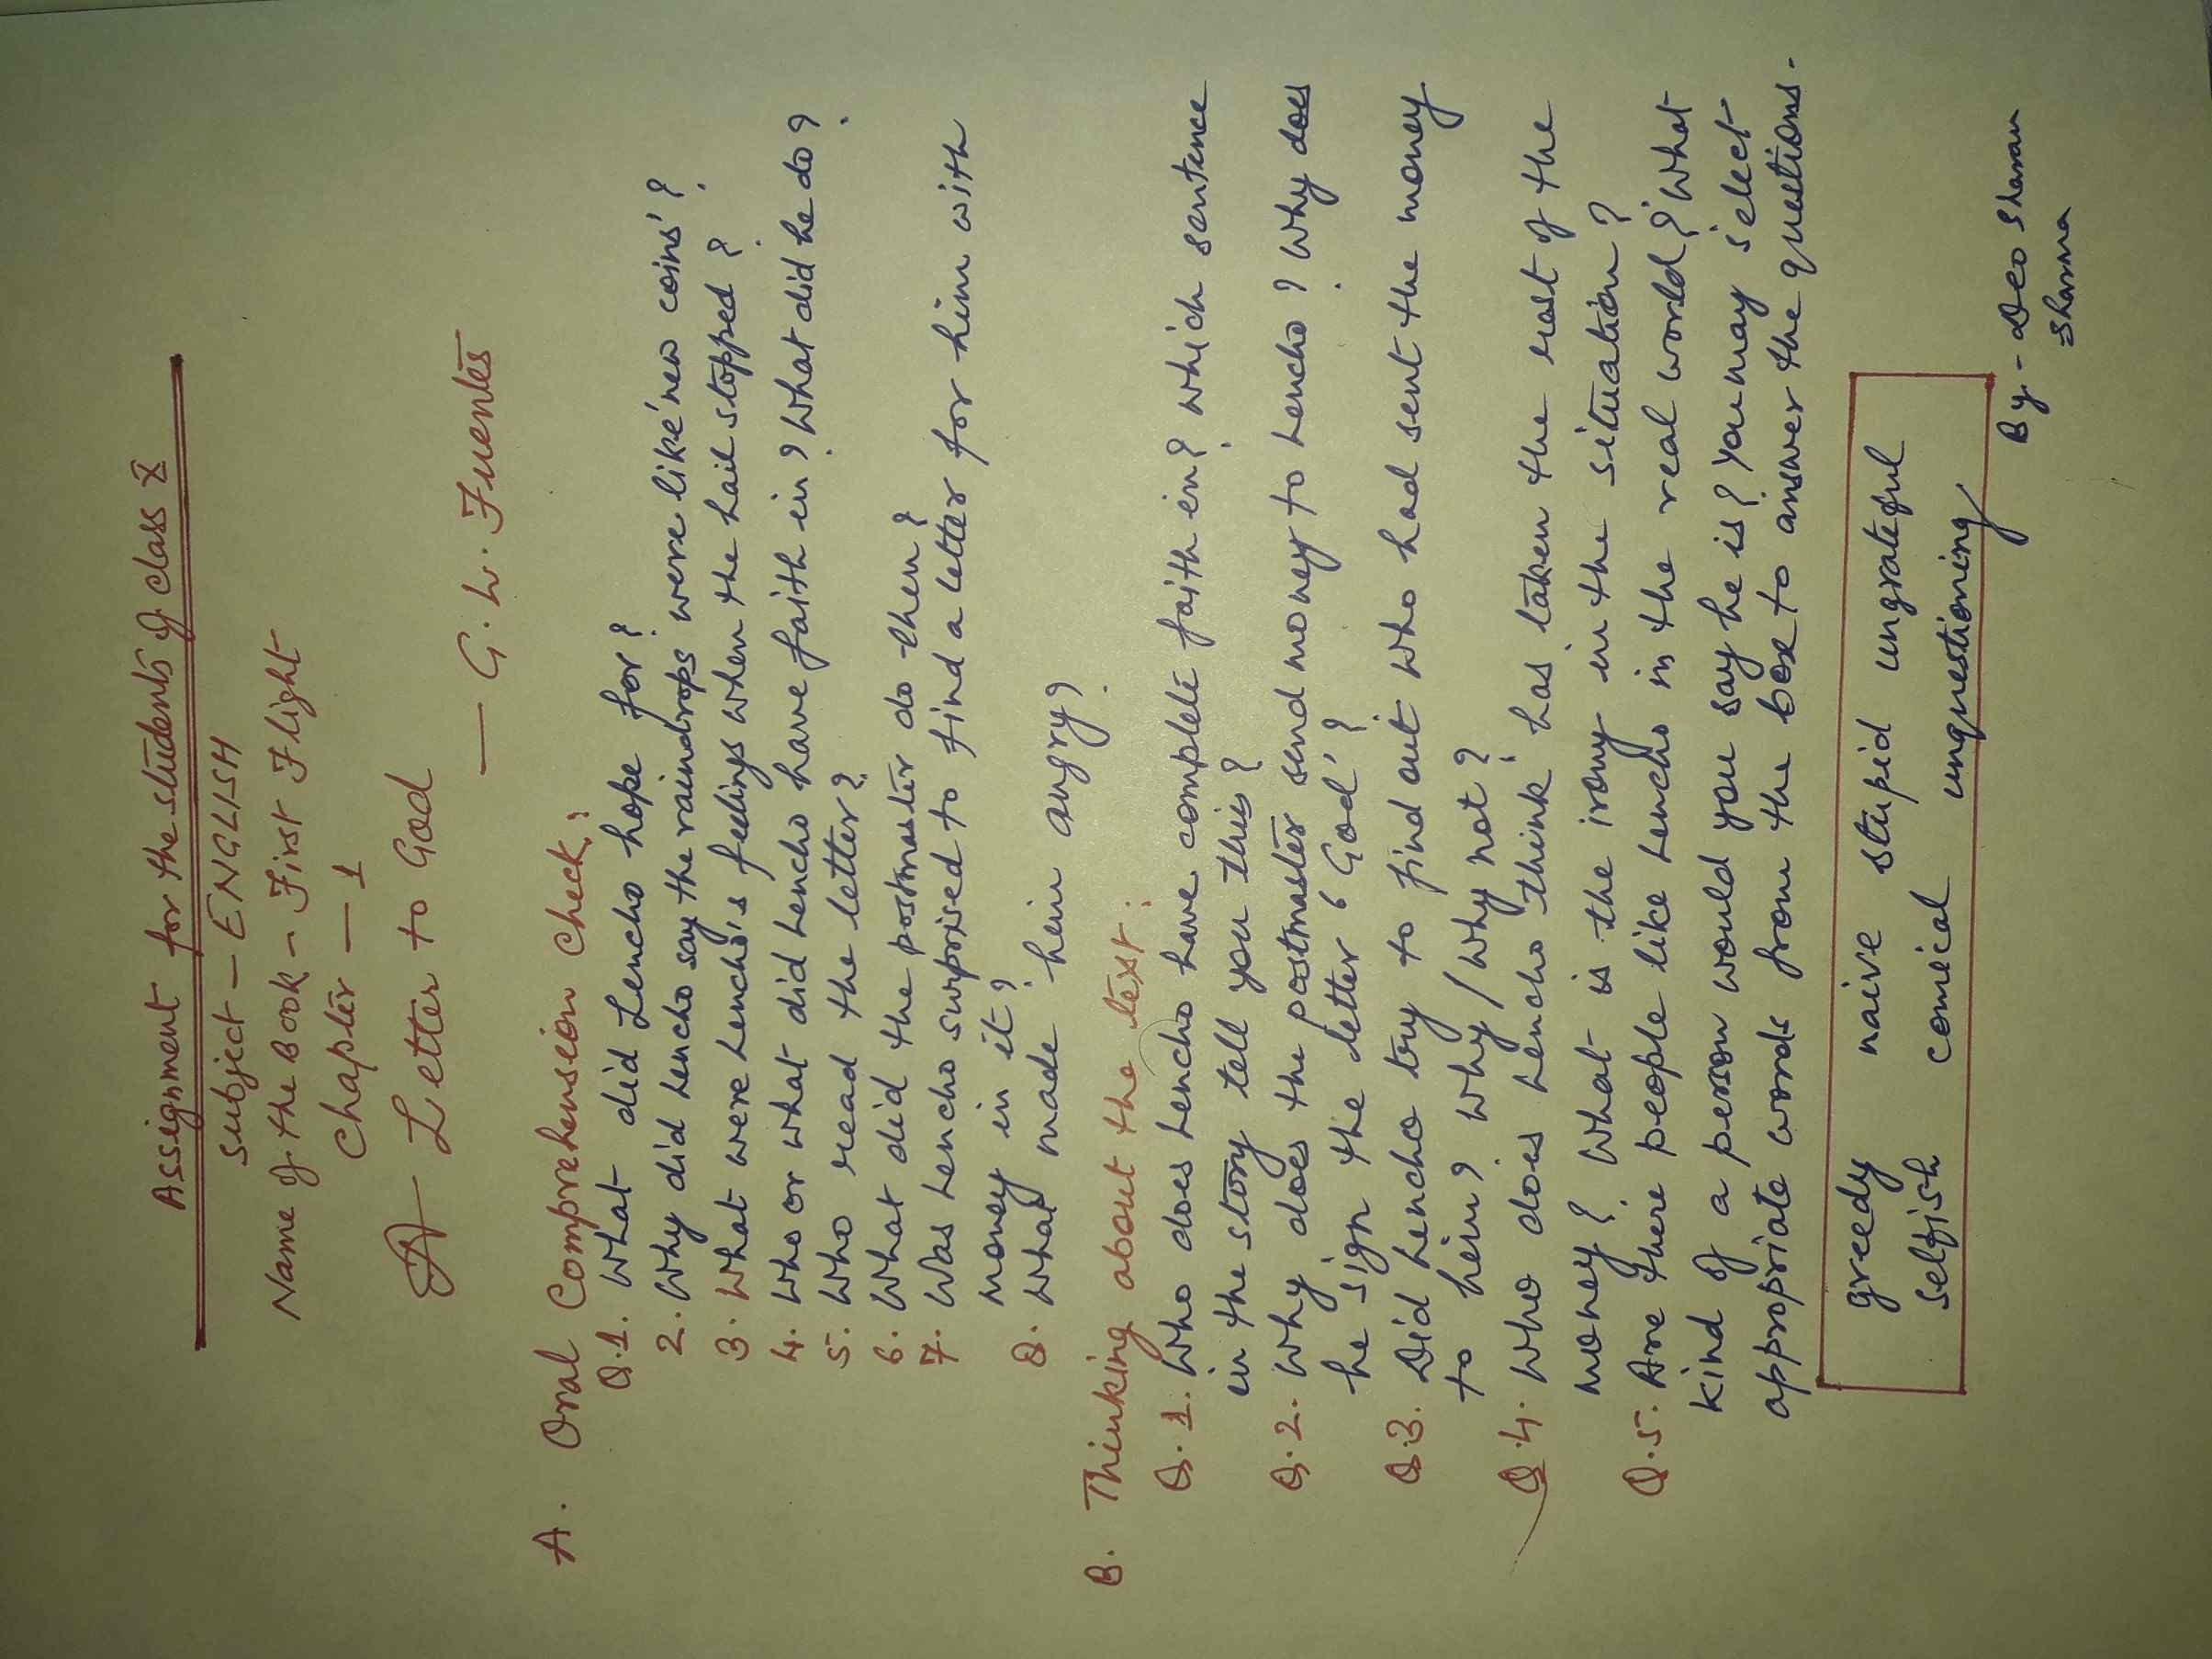 Assignment for the students of class X
Subject - ENGLISH
Name of the Book - First Flight
Chapter - 1
A Letter to God
- G.L. Fuentes
A. Oral Comprehension Check:
Q.1. What did Lencho hope for?
2. Why did Lencho say the raindrops were like 'new coins'?
3. What were Lencho's feelings when the hail stopped?
4. Who or what did Lencho have faith in? What did he do?
5. Who read the letter?
6. What did the postmaster do then?
7. Was Lencho surprised to find a letter for him with
money in it?
8. What made him angry?
B. Thinking about the text:
Q.1. Who does Lencho have complete faith in? Which sentence
in the story tell you this?
Q.2. Why does the postmaster send money to Lencho? Why does
he sign the letter 'God'?
Q.3. Did Lencho try to find out who had sent the money
to him? Why/Why not?
Q.4. Who does Lencho think has taken the rest of the
money? What is the irony in the situation?
Q.5. Are there people like Lencho in the real world? What
kind of a person would you say he is? You may select
appropriate words from the box to answer the questions.
greedy naive stupid ungrateful
selfish comical unquestioning
By - Deo Sharan
Sharma